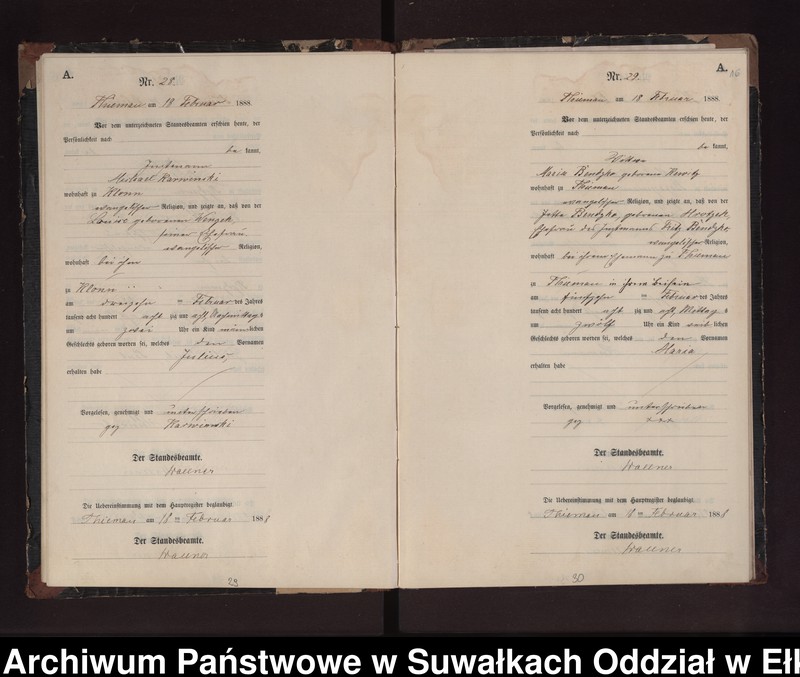 A.
Nr. 28.
am 18 Februar 1888.
Vor dem unterzeichneten Standesbeamten erschien heute, der
Persönlichkeit nach
be kannt,
Instmann
Michael Karwinski
wohnhaft zu Klonn
evangelischer Religion, und zeigte an, daß von der
Louise geborenen
seiner Ehefrau
evangelischer Religion,
wohnhaft bei ihm
zu Klonn
am dreizehn ten Februar des Jahres
tausend acht hundert acht zig und acht, Nachmittags
um zwei Uhr ein Kind männlichen
Geschlechts geboren worden sei, welches den Vornamen
Julius
erhalten habe
Vorgelesen, genehmigt und unterschrieben
gez Karwinski
Der Standesbeamte.
Wallner
Die Uebereinstimmung mit dem Hauptregister beglaubigt
am 18 ten Februar 1888
Der Standesbeamte.
Wallner
29
A.
Nr. 29.
am 18 Februar 1888.
Vor dem unterzeichneten Standesbeamten erschien heute, der
Persönlichkeit nach
be kannt,
Wittwe
Maria Bendzko geborene
wohnhaft zu
evangelischer Religion, und zeigte an, daß von der
Bendzko, geborenen
Ehefrau des Instmanns Fritz Bendzko
evangelischer Religion,
wohnhaft bei ihrem Ehemann zu
zu in ihrem Beisein
am fünfzehn ten Februar des Jahres
tausend acht hundert acht zig und acht, Mittags
um zwölf Uhr ein Kind weib lichen
Geschlechts geboren worden sei, welches den Vornamen
Maria
erhalten habe
Vorgelesen, genehmigt und unterschrieben
gez +++
Der Standesbeamte.
Wallner
Die Uebereinstimmung mit dem Hauptregister beglaubigt
am 18 ten Februar 1888
Der Standesbeamte.
Wallner
30
Archiwum Państwowe w Suwałkach Oddział w Ełk